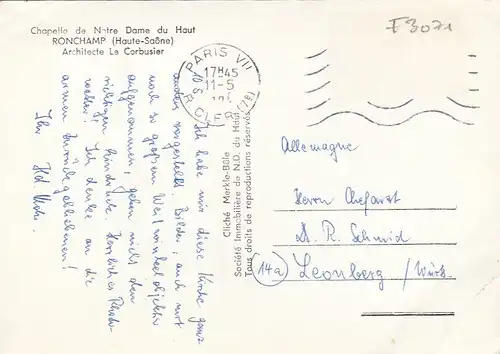 Chapelle de Notre Dame du Haut
RONCHAMP (Haute-Saône)
Architecte Le Corbusier
F3071
PARIS VII
17H45
11-5
R. CLER (7E)
10.5.
Ich habe mir diese Kirche ganz
anders vorgestellt. Bilder, auch mit
noch so großem Weitwinkelobjektiv
aufgenommen, geben nicht den
richtigen Eindruck. Herrliches
wetter! Ich denke an die
armen Zurückgebliebenen!
Ihr
Cliché Merkle-Bôle
Société Immobilière de N.D. du Haut
Tous droits de reproductions réservés
Allemagne
Herrn Chefarzt
Dr. R. Schmid
(14a) Leonberg / Württ.